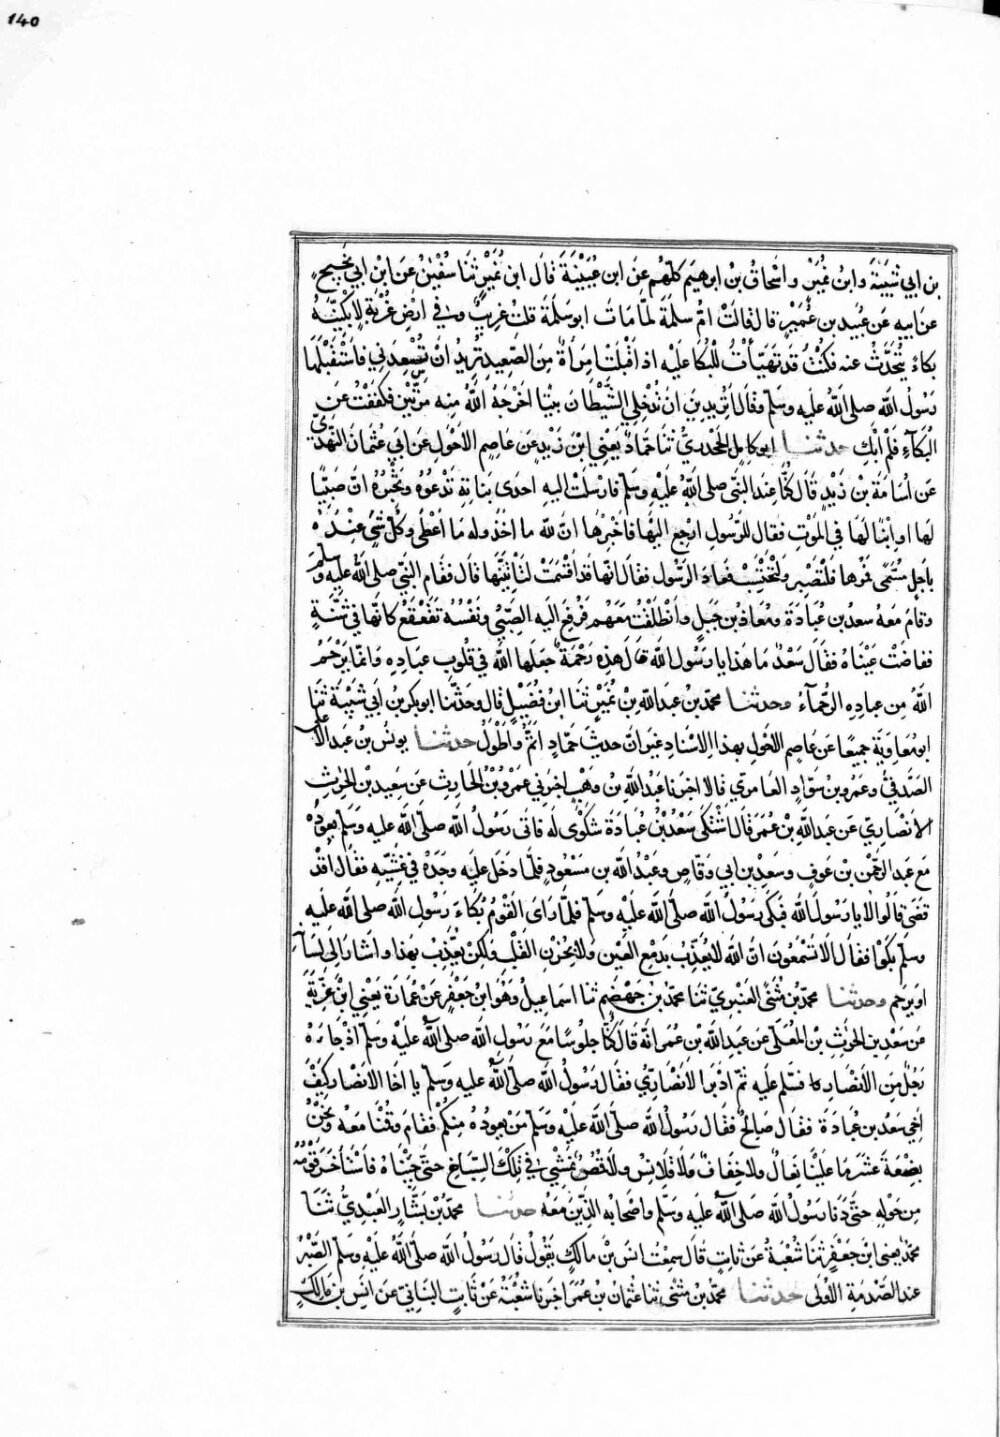 140
بن ابي شيبة وابن نمير واسحاق بن ابرهيم كلهم عن ابن عيينة قال ابن نمير ثنا سفين عن ابن ابي نجيح
عن ابيه عن عبيد بن عمير قال قالت ام سلمة لما مات ابو سلمة قلت غريب وفي ارض غربة لابكينه
بكاء يتحدث عنه فكنت قد تهيأت للبكا عليه اذ اقبلت امرأة من الصعيد تريد ان تسعدني فاستقبلها
رسول الله صلى الله عليه وسلم فقال اتريدين ان تدخلي الشيطان بيتا اخرجه الله منه مرتين فكففت عن
البكآء فلم ابك حدثنا ابو كامل الجحدري ثنا حماد يعني ابن زيد عن عاصم الاحول عن ابي عثمان النهدي
عن اسامة بن زيد قال كنا عند النبي صلى الله عليه وسلم فارسلت اليه احدى بناته تدعوه وتخبره ان صبيا
لها او ابنا لها في الموت فقال للرسول ارجع اليها فاخبرها ان لله ما اخذ وله ما اعطى وكل شئ عنده
باجل مسمى فمرها فلتصبر ولتحتسب فعاد الرسول فقال انها قد اقسمت لتاتينها قال فقام النبي صلى الله عليه وسلم
وقام معه سعد بن عبادة ومعاذ بن جبل وانطلقت معهم فرفع اليه الصبي ونفسه تقعقع كانها في شنة
ففاضت عيناه فقال سعد ما هذا يا رسول الله قال هذه رحمة جعلها الله في قلوب عباده وانما يرحم
الله من عباده الرحمآء وحدثنا محمد بن عبد الله بن نمير ثنا ابن فضيل قال وحدثنا ابو بكر بن ابي شيبة ثنا
ابو معاوية جميعا عن عاصم الاحول بهذا الاسناد غير ان حديث حماد اتم واطول حدثنا يونس بن عبد الاعلى
الصدفي وعمرو بن سواد العامري قالا اخبرنا عبد الله بن وهب اخبرني عمرو بن الحارث عن سعيد بن الحرث
الانصاري عن عبد الله بن عمر قال اشتكى سعد بن عبادة شكوى له فاتى رسول الله صلى الله عليه وسلم يعوده
مع عبد الرحمن بن عوف وسعد بن ابي وقاص وعبد الله بن مسعود فلما دخل عليه وجده في غشيه فقال اقد
قضى قالوا لا يا رسول الله فبكى رسول الله صلى الله عليه وسلم فلما راى القوم بكاء رسول الله صلى الله عليه
وسلم بكوا فقال الا تسمعون ان الله لا يعذب بدمع العين ولا بحزن القلب ولكن يعذب بهذا واشار الى لسانه
او يرحم وحدثنا محمد بن مثنى العنبري ثنا محمد بن جهضم ثنا اسماعيل وهو ابن جعفر عن عمارة يعني ابن غزية
عن سعد بن الحرث بن المعلى عن عبد الله بن عمر انه قال كنا جلوسا مع رسول الله صلى الله عليه وسلم اذ جاءه
رجل من الانصار فسلم عليه ثم ادبر الانصاري فقال رسول الله صلى الله عليه وسلم يا اخا الانصار كيف
اخي سعد بن عبادة فقال صالح فقال رسول الله صلى الله عليه وسلم من يعوده منكم فقام وقمنا معه ونحن
بضعة عشر ما علينا نعال ولا خفاف ولا قلانس ولا قمص نمشي في تلك السباخ حتى جئناه فاستأخر قومه
من حوله حتى دنا رسول الله صلى الله عليه وسلم واصحابه الذين معه حدثنا محمد بن بشار العبدي ثنا
محمد يعني ابن جعفر ثنا شعبة عن ثابت قال سمعت انس بن مالك يقول قال رسول الله صلى الله عليه وسلم الصبر
عند الصدمة الاولى حدثنا محمد بن مثنى ثنا عثمان بن عمر اخبرنا شعبة عن ثابت البناني عن انس بن مالك